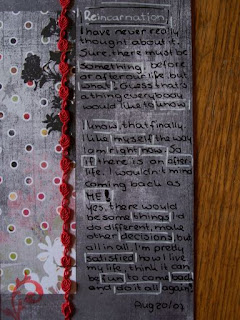 Reincarnation
I have never really
thought about it.
Sure, there must be
something, before
or after our life, but
what? Guess that's
a thing everybody
would like to know.
I know, that finally
I like myself the way
I am right now. So
if there is an after
life. I wouldn't mind
coming back as
ME!
Yes, there would
be some things I'd
do different, make
other decisions, but
all in all, I'm pretty
satisfied how I live
my life, think it can
be fun to come back
and do it all again!
Aug 20/07